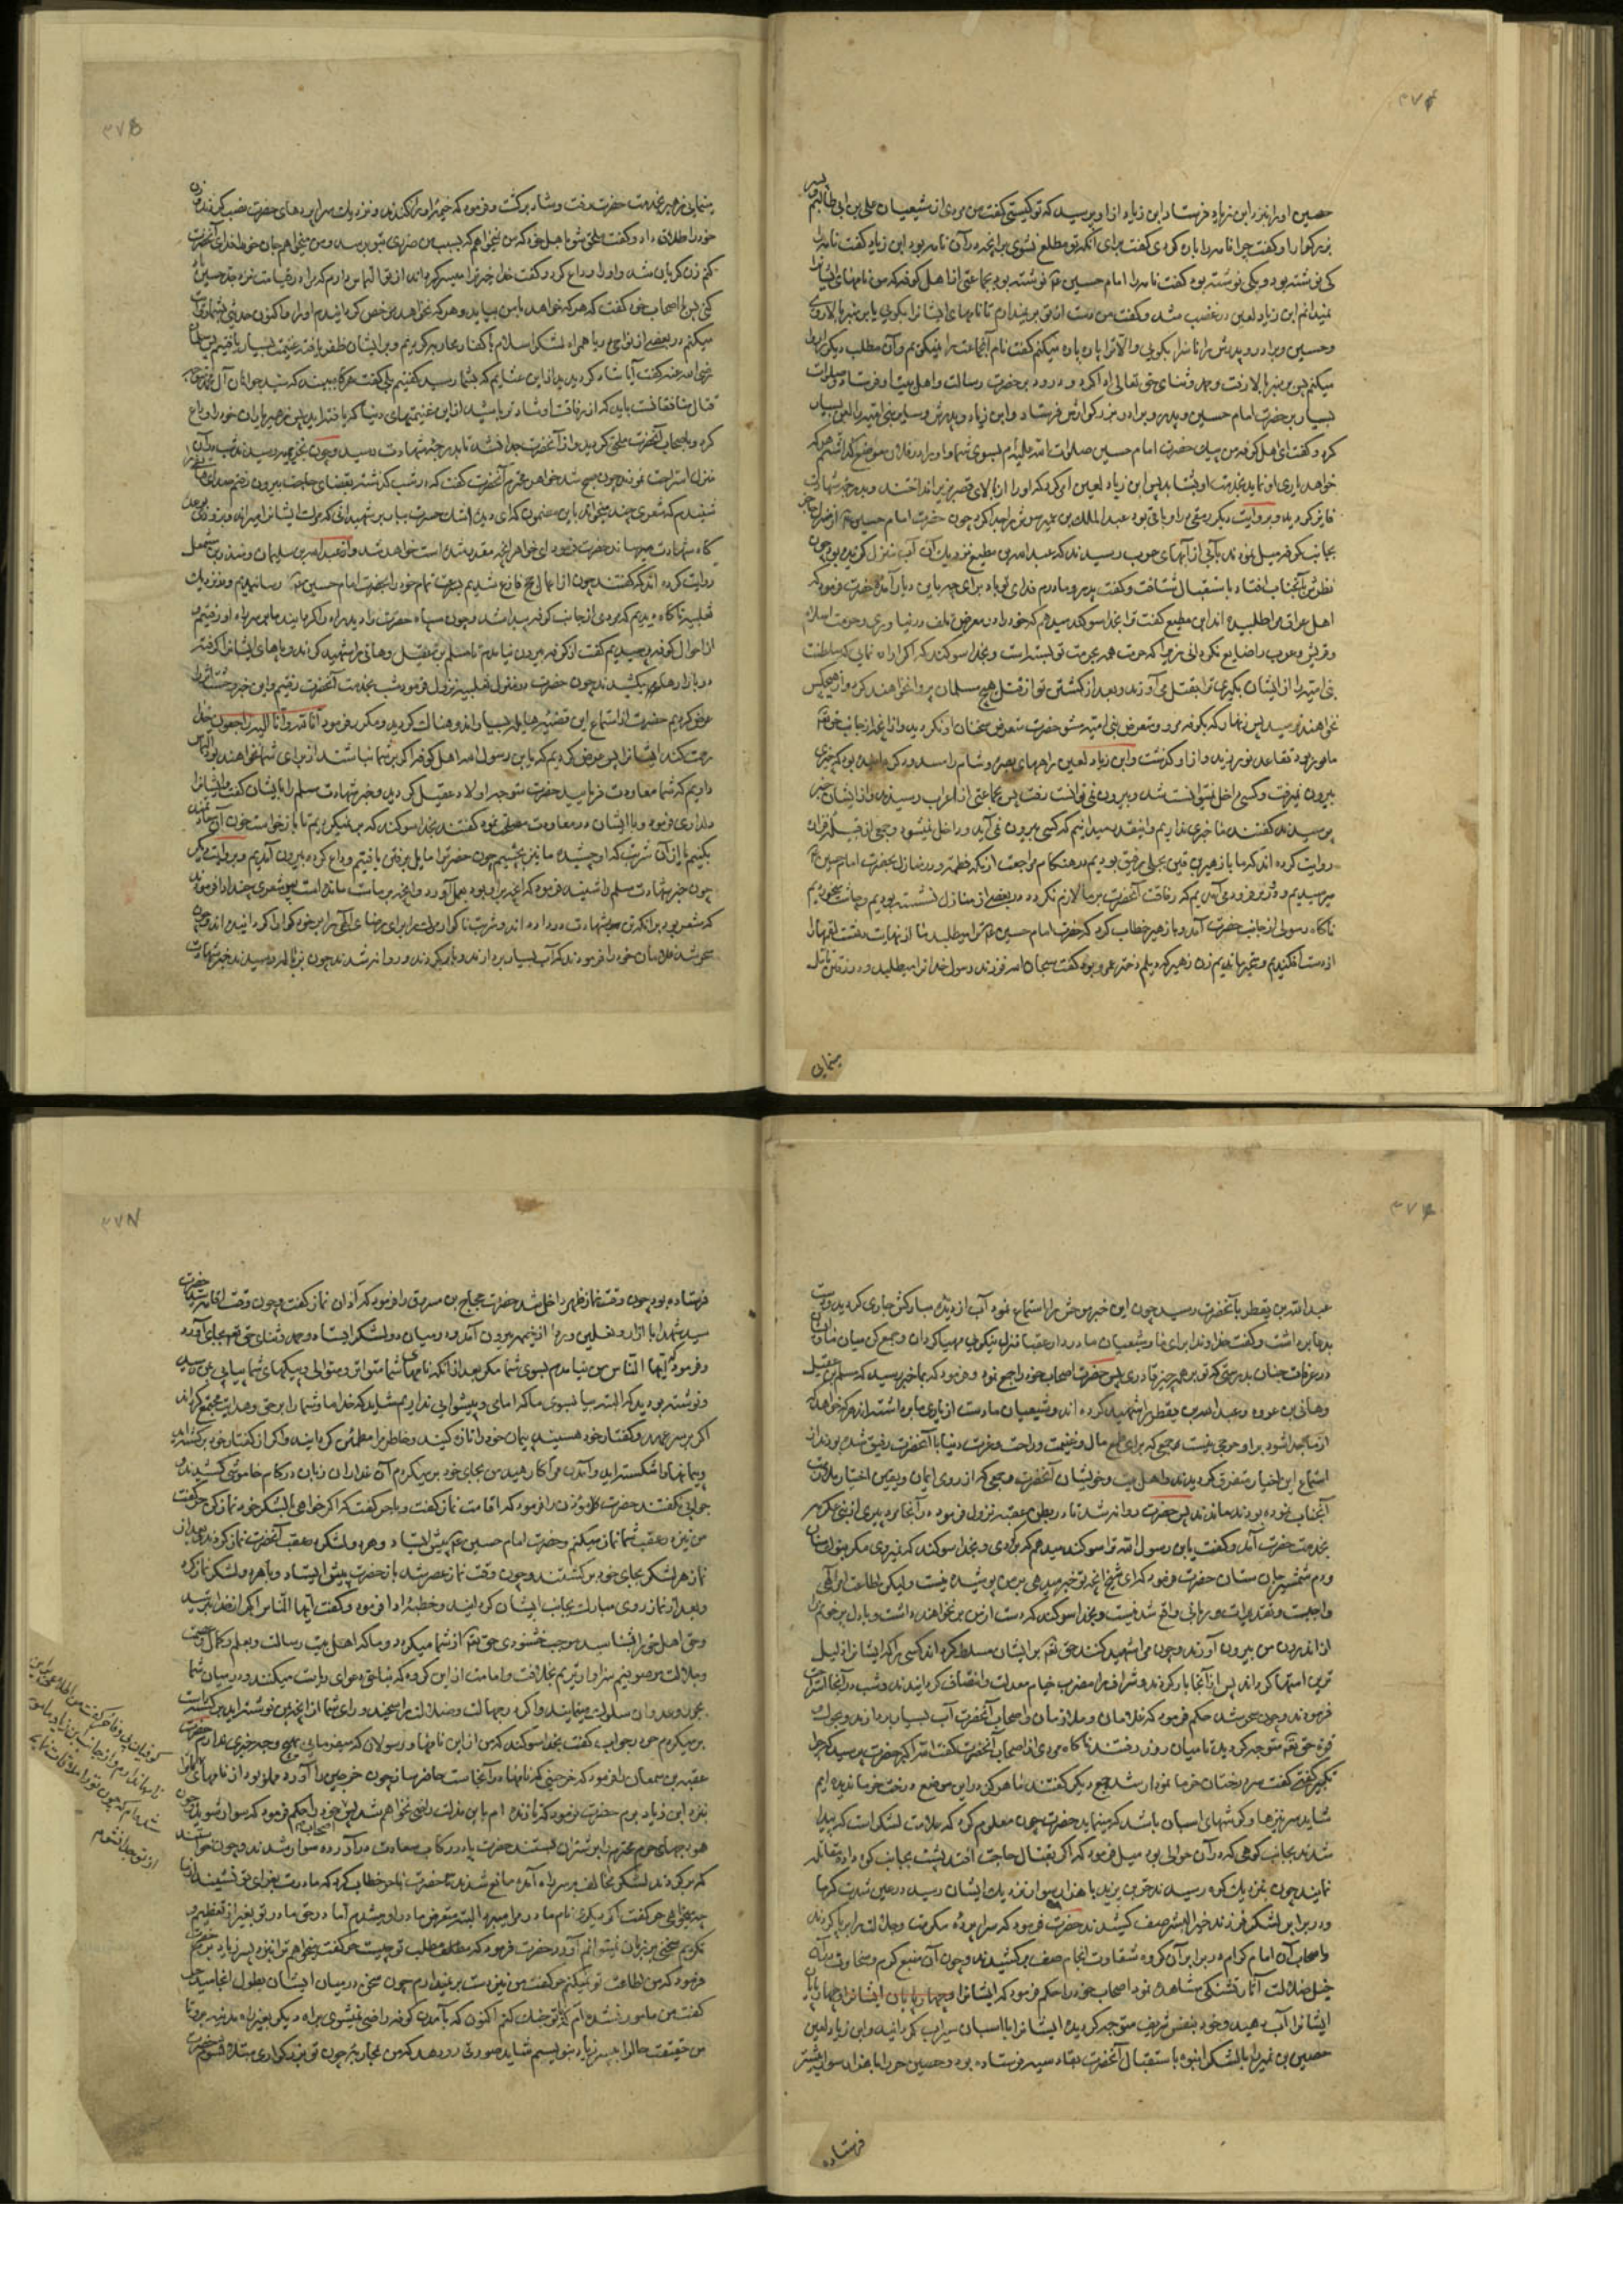 حصین او را بنزد ابن زیاد فرستاد ابن زیاد از او پرسید که تو کیستی گفت من مردی از شیعیان علی بن ابی طالبم و پسر
بزرگوار او گفت چرا نامه را پاره کردی گفت برای آنکه تو مطلع نشوی برانچه در آن نامه بود ابن زیاد گفت نامه را
کی نوشته بود و بکی نوشته بود گفت نامه را امام حسین نوشته بود بجماعتی از اهل کوفه که من نامهای ایشانرا
نمیدانم ابن زیاد لعین در غضب شد و گفت من دست از تو بر نمیدارم تا نامهای ایشانرا بگویی یا بر منبر بالا روی
و حسین و برادر و پدرش را ناسزا بگویی و الا ترا پاره پاره میکنم گفت نام آنجماعت را نمیگویم و آن مطلب دیگر را روا
میکنم پس بر منبر بالا رفت و حمد و ثنای حق تعالی ادا کرد و درود بر حضرت رسالت و اهل بیت او فرستاد و صلوات
بسیار بر حضرت امام حسین و پدر و برادر بزرگوارش فرستاد و ابن زیاد و پدرش و سایر بنی امیه را لعن بسیار
کرد و گفت ای اهل کوفه من پیک حضرت امام حسین صلوات الله علیه ام بسوی شما و او را در فلان موضع گذاشته ام هر که
خواهد یاری او نماید بخدمت او بشتابد پس ابن زیاد لعین امر کرد که او را از بالای قصر بزیر انداختند و بدرجه شهادت
فایز گردید و بروایت دیگر رمقی در او باقی بود عبد الملک بن عمیر سرش را جدا کرد چون حضرت امام حسین از
بجانب کوفه میل نمودند بآبی از آبهای عرب رسیدند که عبد الله بن مطیع نزدیک آن آب منزل گزیده بود چون
نظرش بآنجناب افتاد باستقبال شتافت و گفت پدر و مادرم فدای تو باد برای چه باین دیار آمدهٔ حضرت فرمود که
اهل عراق مرا طلبیده اند ابن مطیع گفت ترا بخدا سوگند میدهم که خود را در معرض تلف در نیاوری و حرمت اسلام
و قریش و عرب را ضایع نگردانی زیرا که حرمت همه بحرمت تو بسته است و بخدا سوگند که اگر اراده نمایی که سلطنت
بنی امیه را از ایشان بگیری ترا بقتل می آورند و بعد از کشتن تو از قتل هیچ مسلمان پروا نخواهند کرد و از هیچکس
نخواهند ترسید پس زنهار که بکوفه مرو و متعرض بنی امیه مشو حضرت متعرض سخنان او نگردید و از آنچه از جانب حق تعالی
مامور بود تقاعد نورزیدند و از او گذشت و ابن زیاد لعین راههای بصره و شام را مسدود کرده بود که خبری
بیرون نمیرفت و کسی داخل نمیتوانست شد و بیرون نمی توانست رفت پس بجماعتی از اعراب رسیدند و از ایشان خبر
پرسیدند گفتند ما خبری نداریم و اینقدر میدانیم که کسی بیرون نمی آید و داخل نمیشود و جمعی از قبیلهٔ فزاره
روایت کرده اند که ما با زهیر بن قین بجلی رفیق بودیم در هنگام مراجعت از مکه معظمه و در منازل بحضرت امام حسین
میرسیدیم و دورتر فرود می آمدیم که رفاقت آنحضرت بر ما لازم نگردد در بعضی از منازل نشسته بودیم و چاشت میخوردیم
ناگاه رسولی از جانب حضرت آمد و با زهیر خطاب کرد که حضرت امام حسین ترا میطلبد ما از نهایت دهشت لقمها را
از دست افکندیم و متحیر ماندیم زن زهیر که دیلم دختر عمرو بود گفت سبحان الله فرزند رسول خدا ترا میطلبد و در رفتن تامل
مینمایی
مینمایی زهیر بخدمت حضرت رفت و شاد برگشت و فرمود که خیمهٔ او را کندند و نزدیک سراپردهای حضرت نصب کردند و زن
خود را طلاق داد و گفت ملحق شو باهل خود که من نمیخواهم که بسبب من ضرری بتو برسد و من میخواهم جان خود را فدای آنحضرت
کنم زن گریان شد و او را وداع کرد و گفت خدا خیر ترا میسر گرداند از تو التماس دارم که مرا در قیامت نزد جد حسین یاد
کنی پس باصحاب خود گفت که هر که خواهد با من بیاید و هر که نخواهد مرخص
میکنم در بعضی از نواحی دریا همراه لشکر اسلام با کفار محاربه کردیم و بر ایشان ظفر یافته غنیمت بسیار یافتیم پس سلمان
رضی الله عنه گفت آیا شاد گردیدید از این غنایم که بشما رسید گفتیم بلی گفت هرگاه ببینید که سید جوانان آل محمد
قتال منافقان باید که از رفاقت او شادتر باشید از این غنیمتهای دنیا که یافته اید پس زهیر یاران خود را وداع
کرد و باصحاب آنحضرت ملحق گردید و از آنحضرت جدا نشد تا بدرجه شهادت رسید و چون بخزیمه رسیدند
منزل استراحت نمودند چون صبح شد خواهر محترم آنحضرت گفت که در شب گذشته بقضای حاجت بیرون رفتم
شنیدم که شعری چند میخواند باین مضمون که ای دیده اشک حسرت ببار بر شهیدانی که
گاه شهادت میرساند حضرت فرمود ای خواهر آنچه مقدر شده است خواهد شد و از عبد الله بن سلیمان و منذر بن مشمعل
روایت کرده اند که گفتند چون از اعمال حج فارغ شدیم بسرعت تمام خود را بحضرت امام حسین رسانیدیم و نزدیک
ثعلبیه ناگاه دیدیم که مردی از جانب کوفه پیدا شد و چون سپاه حضرت را دید راه را گردانید ما بر سر راه او رفتیم
از احوال کوفه پرسیدیم گفت از کوفه بیرون نیامدم تا مسلم بن عقیل و هانی را شهید کردند و پاهای ایشانرا گرفته
در بازارها میکشیدند چون حضرت در منزل ثعلبیه نزول فرمود شب بخدمت آنحضرت رفتیم و این خبر وحشت اثر را
عرض کردیم حضرت از استماع این قضیهٔ هایله بسیار اندوهناک گردید و مکرر فرمود انا لله و انا الیه راجعون خدا
رحمت کند ایشانرا پس عرض کردیم که یابن رسول الله اهل کوفه اگر بر شما نباشند از برای شما نخواهند بود التماس
داریم که شما معاودت فرمایید حضرت متوجه اولاد عقیل گردید و خبر شهادت مسلم را بایشان گفت و ایشانرا
دلداری فرمود و با ایشان در معاودت مصلحت نمود گفتند بخدا سوگند که بر نمیگردیم تا بازخواست خون آن
بکنیم یا از آن شربت که او چشیده ما نیز بچشیم چون حضرت را مایل برفتن یافتیم وداع کرده بیرون آمدیم و بروایت دیگر
چون خبر شهادت مسلم را شنید فرمود که آنچه بر او بود بعمل آورد و آنچه بر ماست مانده است پس شعری چند ادا فرمود
که مشعر بود بر آنکه تن بشهادت در داده اند و شربت ناگوار مرگ را برای رضای الهی بر خود گوارا گردانیده اند و چون
سحر شد غلامان خود را فرمودند که آب بسیار بردارند و بار کردند و روانه شدند چون بزباله رسیدند خبر شهادت
عبد الله بن یقطر بآنحضرت رسید چون این خبر موحش را استماع نمود آب از دیده مبارکش جاری گردید و دست
بدعا برداشت و گفت خداوندا برای ما و شیعیان ما در دار عقبا منزل نیکویی مهیا گردان و جمع کن میان ما و ایشان
در غرفات جنان بدرستی که تو بر همه چیز قادری پس حضرت اصحاب خود را جمع نمود و فرمود که بما خبر رسید که مسلم بن عقیل
و هانی بن عروه و عبد الله بن یقطر را شهید کرده اند و شیعیان ما دست از یاری ما برداشته اند هر که خواهد
از ما جدا شود بر او حرجی نیست پس جمعی که برای طمع مال و غنیمت و راحت و عزت دنیا با آنحضرت رفیق شده بودند از
استماع این اخبار متفرق گردیدند و اهل بیت و خویشان آنحضرت و جمعی که از روی ایمان و یقین اختیار ملازمت
آنجناب نموده بودند ماندند پس حضرت روانه شد تا در بطن عقبه نزول فرمود و در آنجا مرد پیری از بنی عکرمه
بخدمت حضرت آمد و گفت یابن رسول الله ترا سوگند میدهم که برگردی و بخدا سوگند که نمیروی مگر بنوک سنان
و دم شمشیر جان ستان حضرت فرمود که ای شیخ آنچه تو خبر میدهی بر من پوشیده نیست و لیکن اطاعت امر الهی
واجبست و تقدیرات ربانی واقع شدنیست و بخدا سوگند که دست از من بر نخواهند داشت و تا دل پر خونم را
از اندرون من بیرون آورند و چون مرا شهید کنند حق تعالی بر ایشان مسلط گرداند کسی را که ایشانرا ذلیل
ترین امتها گرداند پس از آنجا بار کردند و شراف را مضرب خیام معدلت و انصاف گردانیدند و شب در آنجا استراحت
فرمودند و چون سحر شد حکم فرمود که غلامان و ملازمان و اصحاب آنحضرت آب بسیار بردارند و بجوار
قرة حق تعالی متوجه گردیدند تا میان روز رفتند ناگاه مردی از اصحاب آنحضرت گفت الله اکبر حضرت پرسید که چرا
تکبیر گفتی گفت سر درختان خرما نمودار شد جمع دیگر گفتند ما هرگز در این موضع درخت خرما ندیده ایم
شاید سر نیزها و گوشهای اسبان باشد که مینماید حضرت چون معلوم کرد که علامت لشکر است که پیدا
شدند بجانب کوهی که در آن حوالی بود میل فرمود که اگر بقتال حاجت افتد پشت بجانب کوه داده مقاتله
نمایند چون نزدیک کوه رسیدند حر بن یزید با هزار سوار نزدیک ایشان رسید در عین شدت گرما
و در برابر لشکر فرزند خیر البشر صف کشیدند حضرت فرمود که سراپردهٔ مکرمت و جلالت را برپا کردند
و اصحاب آن امام کرام در برابر آن گروه شقاوت انجام صف برکشیدند و چون آن منبع کرم و سخاوت در آن
خیل ضلالت آثار تشنگی مشاهده نمود اصحاب خود را حکم فرمود که ایشانرا و چهارپایان ایشانرا
ایشانرا آب دهید و خود بنفس شریف متوجه گردیده ایشانرا با اسبان سیراب گردانید و ابن زیاد لعین
حصین بن نمیر را با لشکر انبوه باستقبال آنحضرت بقادسیه فرستاده بود و حصین حر را با هزار سوار پیشتر
فرستاده
فرستاده بود چون وقت نماز ظهر داخل شد حضرت حجاج بن مسروق را فرمود که اذان نماز گفت و چون وقت اقامه شد حضرت
سید شهدا با ازار و نعلین و ردا از خیمه بیرون آمد و در میان دو لشکر ایستاد و حمد و ثنای حق تعالی بجای آورد
و فرمود ایها الناس من نیامدم بسوی شما مگر بعد از آنکه نامهای شما متواتر و متوالی و پیکهای شما پیاپی بمن رسید
و نوشته بودید که البته بیا بسوی ما که امامی و پیشوایی نداریم شاید که خدا ما و شما را بر حق و هدایت مجتمع گرداند
اگر بر سر عهد و گفتار خود هستید پیمان خود را تازه کنید و خاطر مرا مطمئن گردانید و اگر از گفتار خود برگشته اید
و پیمانها را شکسته اید و آمدن مرا کارهید من بجای خود بر میگردم آن غداران زبان در کام خاموشی کشیدند و
جوابی نگفتند حضرت مؤذن را فرمود که اقامت نماز گفت و با حر گفت که اگر خواهی با لشکر خود نماز کن حر گفت
من نیز در عقب شما نماز میکنم و حضرت امام حسین پیش ایستاد و هر دو لشکر در عقب آنحضرت نماز کردند بعد از
نماز هر لشکر بجای خود برگشتند و چون وقت نماز عصر شد باز حضرت پیش ایستاد و با هر دو لشکر نماز کرد
و بعد از نماز روی مبارک بجانب ایشان گردانید و خطبهٔ ادا فرمود و گفت ایها الناس اگر از خدا بترسید
و حق اهل حق را بشناسید موجب خشنودی حق تعالی از شما میگردد و ما که اهل بیت رسالت و بعلم و کمال و عصمت
و جلالت موصوفیم سزاوارتریم بخلافت و امامت از این گروه که بناحق دعوای ریاست میکنند و در میان شما
بجور و عدوان سلوک مینمایند و اگر در جهالت و ضلالت راسخید و رای شما از آنچه بمن نوشته اید برگشته است
بر میگردم حر در جواب گفت بخدا سوگند که من از این نامها و رسولان که میفرمایی بهیچ وجه خبری ندارم حضرت
عقبه بن سمعان را فرمود که خرجینی که نامها در آنجاست حاضر ساز چون خرجین را آورد مملو بود از نامهای
نزد ابن زیاد برم حضرت فرمود که تا زنده ام باین مذلت راضی نخواهم شد پس اصحاب خود را حکم فرمود که سوار شوید چون
هودجهای حرم محترم را بر شتران بستند حضرت پا در رکاب سعادت در آورده سوار شدند و چون خواستند
که برگردند لشکر مخالف بر سر راه آمده مانع شدند حضرت با حر خطاب کرد که مادرت بعزای تو نشیند از ما
چه میخواهی حر گفت اگر دیگری نام مادر مرا میبرد البته متعرض مادر او میشدم اما در حق مادر تو بغیر از تعظیم و
تکریم سخنی بر زبان نمیتوانم آورد حضرت فرمود که مطلب تو چیست حر گفت میخواهم ترا بنزد پسر زیاد برم حضرت
فرمود که من اطاعت تو نمیکنم حر گفت من نیز دست بر نمیدارم چون سخن در میان ایشان بطول انجامید حر
گفت من مامور نشده ام که با تو جنگ کنم اکنون که بآمدن کوفه راضی نمیشوی براه دیگر بغیر راه مدینه برو تا
من حقیقت حال را بپسر زیاد بنویسم شاید صورتی رو دهد که من بمحاربهٔ چون تو بزرگواری مبتلا نشوم حضرت
کوفیان بی وفا حر گفت من اطلاعی بر این
نامها ندارم و از جانب ابن زیاد مامور
شده ام که چون ترا ملاقات نمایم
از تو جدا نشوم